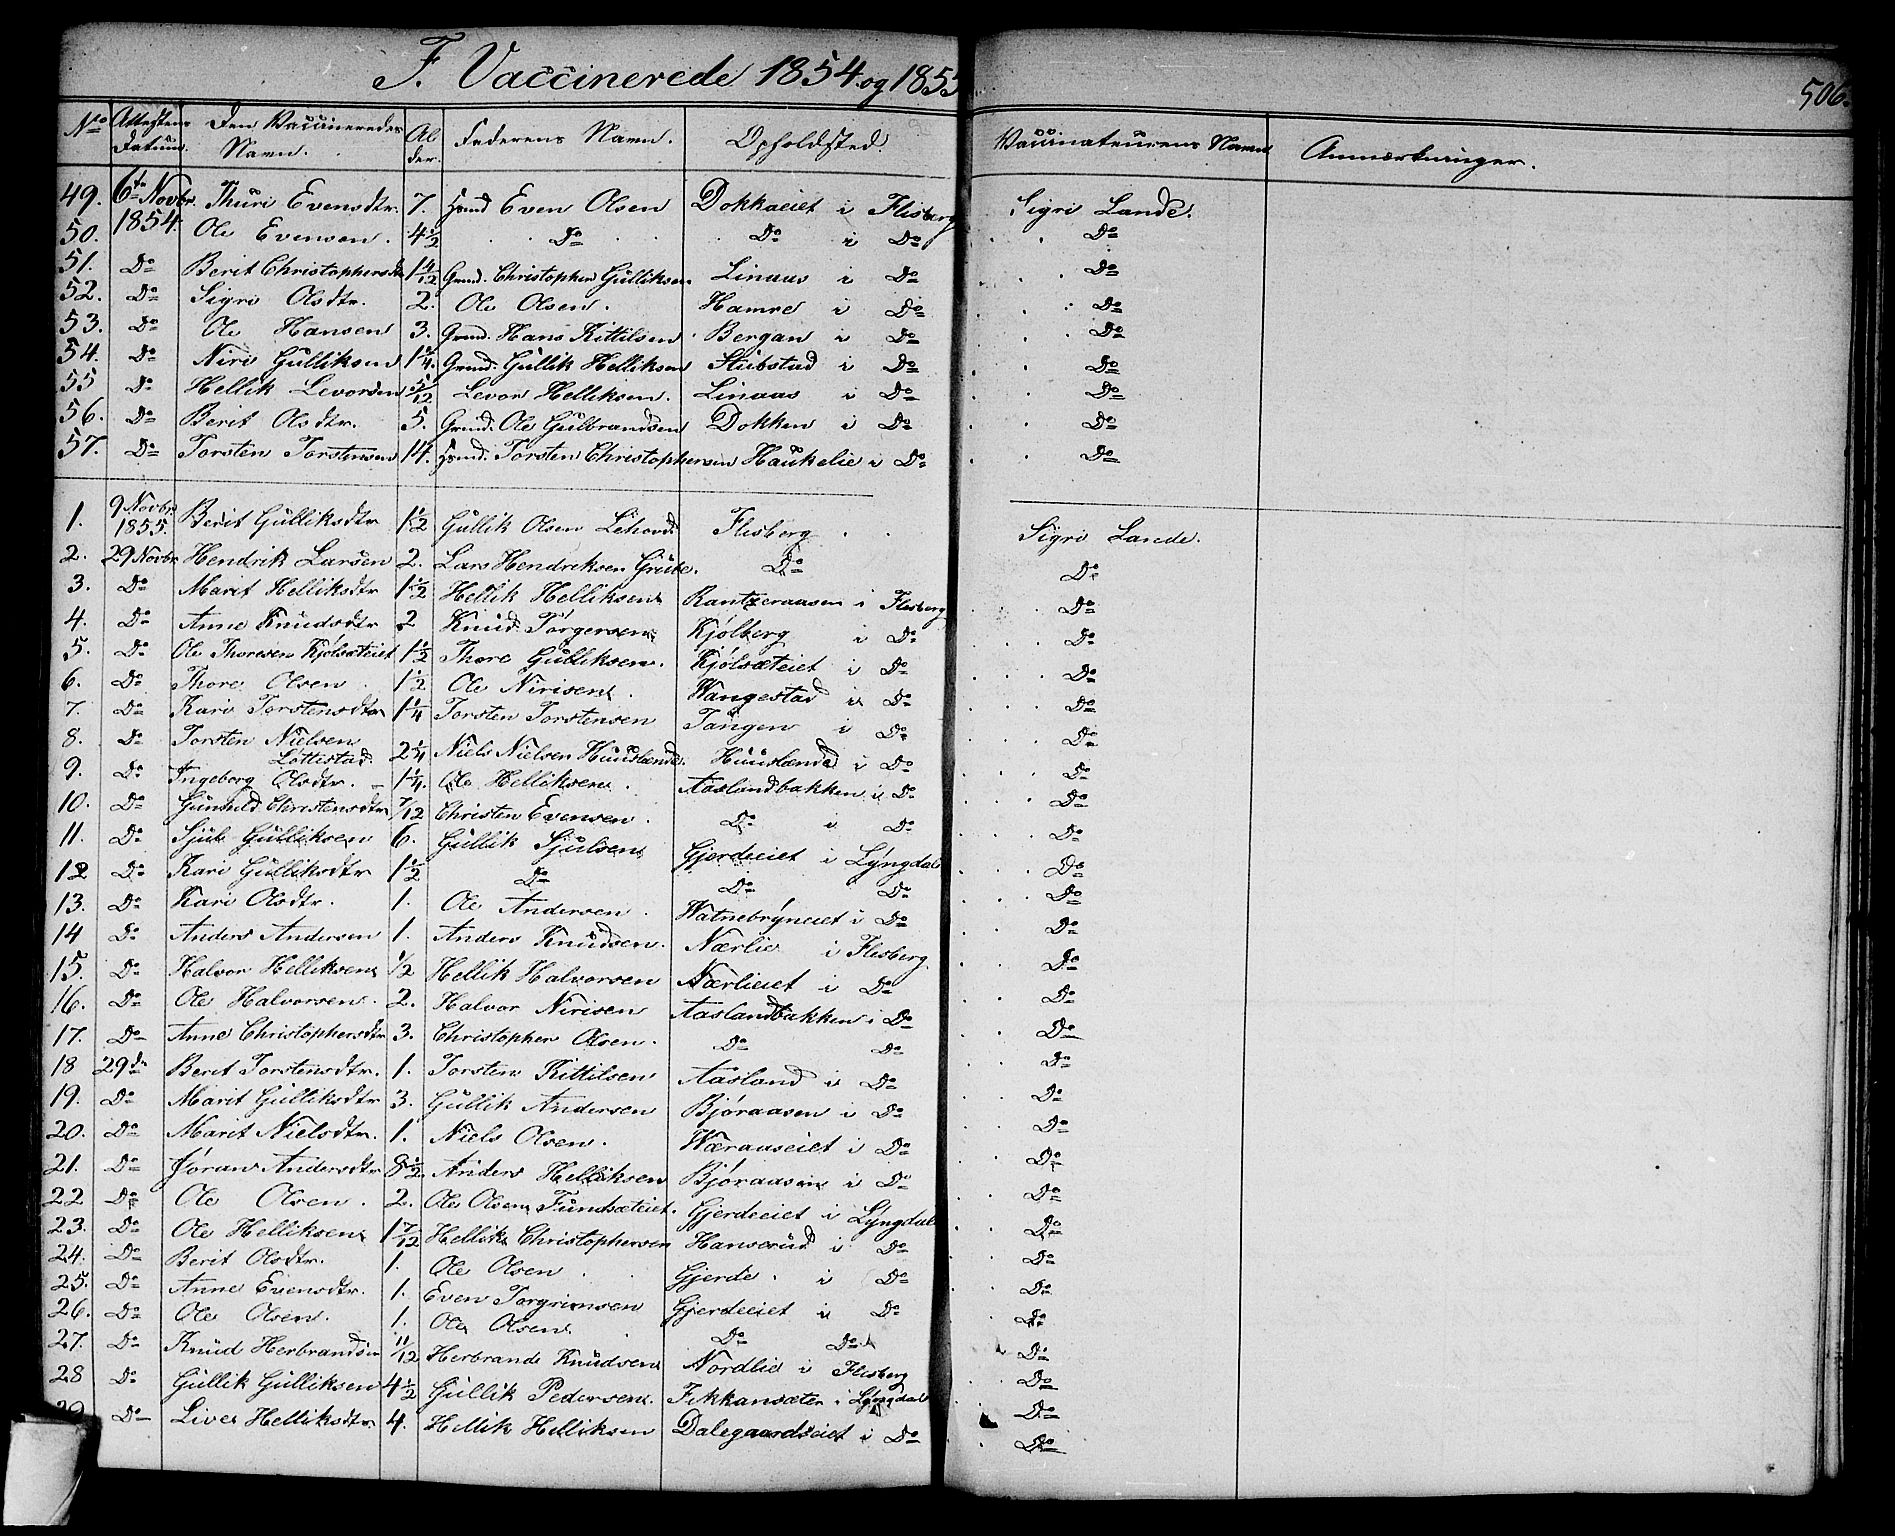 F. Vaccinerede 1854 og 1855
506.
No Attestens Datum. Den Vaccineredes Navn. Alder. Faderens Navn. Opholdsted. Vaccinateurens Navn Anmærkninger.
49. 6te Novbr. 1854. Thuri Evensdtr. 7. Hsmd Even Olsen Dokkaeiet i Flisberg Sigri Lande.
50. Ole Evensen. 4 1/2 Do Do i Do Do
51. Do Berit Christophersdtr 1 4/12 Grmd. Christopher Gulliksen Linaas i Do Do
52. Do Sigri Olsdtr. 2. Ole Olsen. Hamre i Do Do
53. Do Ole Hansen 3. Grmd. Hans Kittilsen Bergan i Do Do
54. Do Niri Gulliksen 1 1/4. Grmd. Gullik Helliksen Stubstad i Do Do
55 Do Hellik Levorsen 5/12 Levor Helliksen. Linaas i Do Do
56. Do Berit Olsdtr. 5. Grmd. Ole Gulbrandsen Dokken i Do Do
57. Do Torsten Torstensen 14. Hsmd. Torsten Christophersen Haukelie i Do Do
1. 9 Novbr. 1855. Berit Gulliksdtr 1 1/2 Gullik Olsen Lehovd Flisberg Sigri Lande.
2. 29 Novbr Hendrik Larsen 2. Lars Hendriksen Grube. Do Do
3. Do Marit Helliksdtr 1 1/2 Hellik Helliksen Rantzeraasen i Flisberg Do
4. Do Anne Knudsdtr 2 Knud Torgersen Kjølberg i Do Do
5. Do Ole Thoresen Kjølsæteiet 1 1/2 Thore Gulliksen. Kjølsæteiet i Do Do
6. Do Thore Olsen 1 1/2 Ole Nirisen. Wangestad i Do Do
7. Do Kari Torstensdtr 1 1/4 Torsten Torstensen Tangen i Do Do
8. Do Torsten Nielsen Løttestad 2 1/4 Niels Nielsen Huuslænde. Huuslænde i Do Do
9. Do Ingeborg Olsdtr. 1 1/4. Ole Helliksen. Aaslandbakken i Do Do
10. Do Gunhild Christensdtr 7/12 Christen Evensen. Do i Do Do
11. Do Sjul Gulliksen 6. Gullik Sjulsen Gjerdeeiet i Lyngdal Do
12 Do Kari Gulliksdtr 1 1/2 Do Do Do Do
13. Do Kari Olsdtr. 1. Ole Andersen. Watnebryneiet i Do Do
14 Do Anders Andersen 1. Anders Knudsen. Nærlie i Flisberg Do
15. Do Halvor Helliksen 1/2 Hellik Halvorsen Nærlieiet i Do Do
16. Do Ole Halvorsen. 2. Halvor Nirisen Aaslandbakken i Do Do
17. Do Anne Christophersdtr 3. Christopher Olsen. Do Do Do
18 29de Berit Torstensdtr. 1. Torsten Kittilsen Aasland i Do Do
19. Do Marit Gulliksdtr 3. Gullik Andersen Bjøraasen i Do Do
20. Do Marit Nielsdtr. 1. Niels Olsen. Wæraaseiet i Do Do
21. Do Jøran Andersdtr 8 1/2 Anders Helliksen Bjøraasen i Do Do
22 Do Ole Olsen. 2. Ole Olsen Fundsæteiet. Gjerdeeiet i Lyngdal Do
23. Do Ole Helliksen 1 7/12 Hellik Christophersen Hanserud i Do Do
24. Do Berit Olsdtr. 1. Ole Olsen Gjerde. i Do Do
25. Do Anne Evensdtr. 1. Even Torgrimsen Gjerdeeiet i Do Do
26. Do Ole Olsen. 1. Ole Olsen. Do Do. Do
27. Do Knud Herbrandsen 11/12 Herbrand Knudsen Nordlie i Flisberg Do
28 Do Gullik Gulliksen 4 1/2 Gullik Pedersen. Fikkansæter i Lyngdal Do
29 Do Live Helliksdtr 4. Hellik Helliksen Dalegaardseiet i Do Do